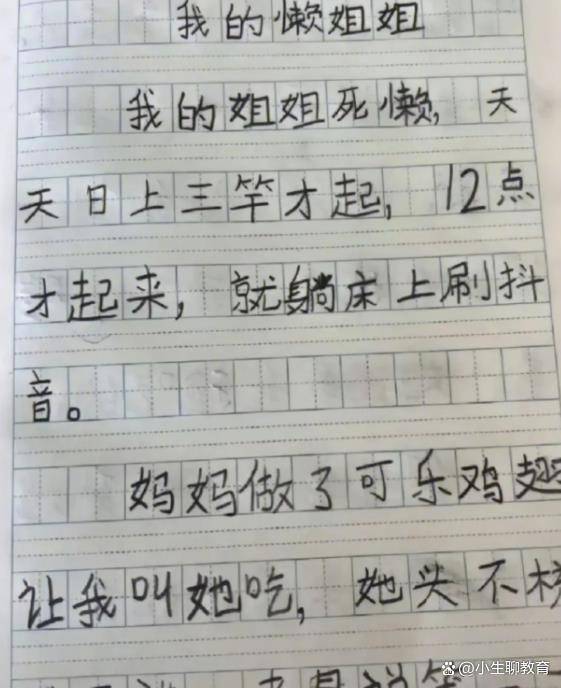 我的懒姐姐
我的姐姐死懒,天
天日上三竿才起,12点
才起来,就躺床上刷抖
音。
妈妈做了可乐鸡翅
让我叫她吃,她头不
@小生聊教育